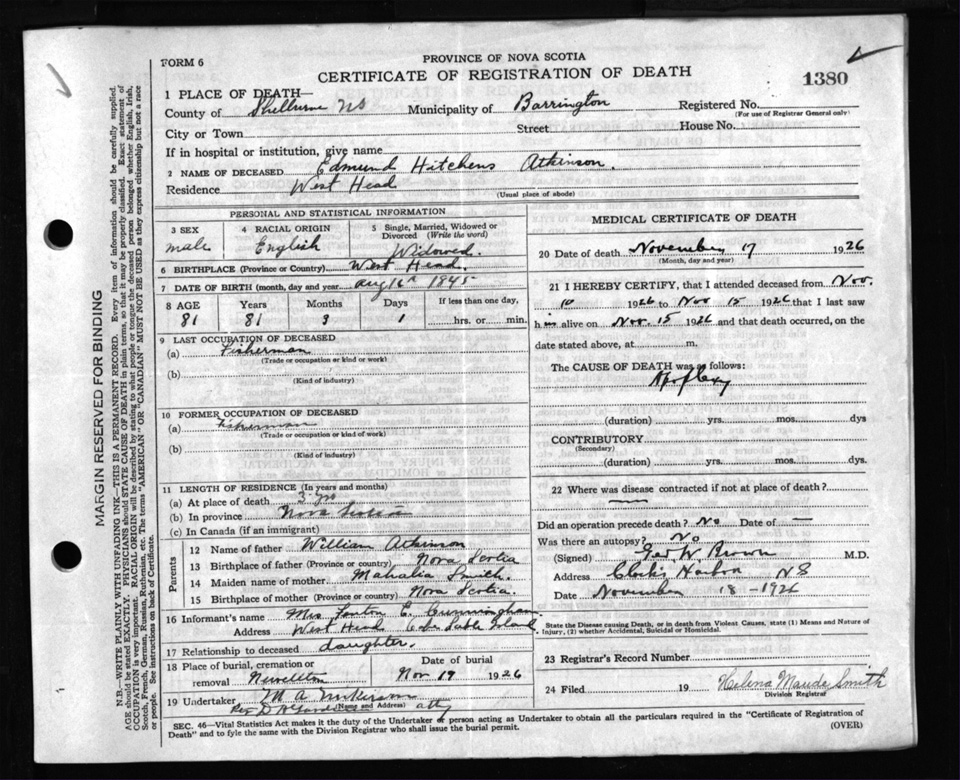 FORM 6
PROVINCE OF NOVA SCOTIA
CERTIFICATE OF REGISTRATION OF DEATH
1380
1 PLACE OF DEATH—
County of Shelburne NS Municipality of Barrington Registered No.
(For use of Registrar General only)
City or Town Street House No.
If in hospital or institution, give name
2 NAME OF DECEASED Edmund Hitchens Atkinson.
Residence West Head
(Usual place of abode)
PERSONAL AND STATISTICAL INFORMATION
3 SEX
male
4 RACIAL ORIGIN
English
5 Single, Married, Widowed or Divorced (Write the word)
Widowed.
6 BIRTHPLACE (Province or Country) West Head.
7 DATE OF BIRTH (month, day and year) Aug 16 1845
8 AGE Years Months Days If less than one day,
81 81 3 1 hrs. or min.
9 LAST OCCUPATION OF DECEASED
(a) Fisherman
(Trade or occupation or kind of work)
(b)
(Kind of industry)
10 FORMER OCCUPATION OF DECEASED
(a) Fisherman
(Trade or occupation or kind of work)
(b)
(Kind of industry)
11 LENGTH OF RESIDENCE (In years and months)
(a) At place of death 3 yrs
(b) In province Nova Scotia
(c) In Canada (if an immigrant)
Parents
12 Name of father William Atkinson
13 Birthplace of father (Province or country) Nova Scotia
14 Maiden name of mother Mahalia Smith.
15 Birthplace of mother (Province or country) Nova Scotia.
16 Informant's name Mrs E. Cunningham.
Address West Head Cape Sable Island
17 Relationship to deceased daughter.
18 Place of burial, cremation or removal Newellton
Date of burial
Nov 19 1926
19 Undertaker M A
(Name and Address)
Rev D
SEC. 46—Vital Statistics Act makes it the duty of the Undertaker or person acting as Undertaker to obtain all the particulars required in the "Certificate of Registration of
Death" and to fyle the same with the Division Registrar who shall issue the burial permit.
(OVER)
MEDICAL CERTIFICATE OF DEATH
20 Date of death November 17 1926
(Month, day and year)
21 I HEREBY CERTIFY, that I attended deceased from Nov.
10 1926 to Nov 15 1926 that I last saw
him alive on Nov. 15 1926 and that death occurred, on the
date stated above, at m.
The CAUSE OF DEATH was as follows:
Apoplexy
(duration) yrs. mos. dys
CONTRIBUTORY
(Secondary)
(duration) yrs. mos. dys.
22 Where was disease contracted if not at place of death?
Did an operation precede death? No Date of —
Was there an autopsy? No
(Signed) Geo W Brown M.D.
Address Clark's Harbor NS
Date November 18 - 1926
State the Disease causing Death, or in death from Violent Causes, state (1) Means and Nature of
Injury, (2) whether Accidental, Suicidal or Homicidal.
23 Registrar's Record Number
24 Filed 19 Helena Maude Smith
Division Registrar
MARGIN RESERVED FOR BINDING
N.B.—WRITE PLAINLY WITH UNFADING INK—THIS IS A PERMANENT RECORD. Every item of information should be carefully supplied.
AGE should be stated EXACTLY. PHYSICIANS should STATE CAUSE OF DEATH in plain terms, so that it may be properly classified. Exact statement of
OCCUPATION is very important. RACIAL ORIGIN will be described by stating to what people or tongue the deceased person belonged whether English, Irish,
Scotch, French, German, Russian, Ruthenian etc. The terms "AMERICAN" OR "CANADIAN" MUST NOT BE USED as they express citizenship but not a race
or people. See instructions on back of Certificate.